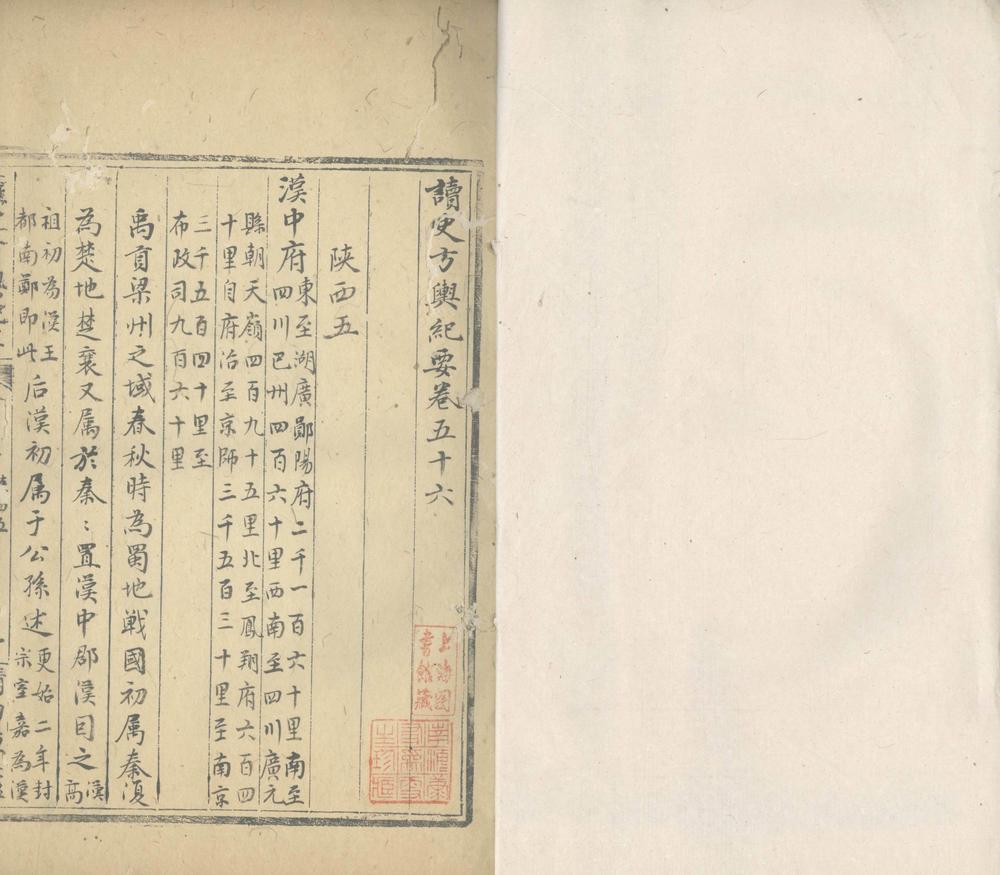 讀史方輿紀要卷五十六
陝西五
漢中府
東至湖廣鄖陽府二千一百六十里南至
四川巴州四百六十里西南至四川廣元
縣朝天嶺四百九十五里北至鳳翔府六百四
十里自府治至京師三千五百三十里至南京
三千五百四十里至
布政司九百六十里
禹貢梁州之域春秋時為蜀地戰國初属秦復
為楚地楚衰又属於秦〻置漢中郡漢因之
漢
高
祖初為漢王
都南鄭即此
后漢初属于公孫述
更始二年封
宗室嘉為漢
上海图
書館藏